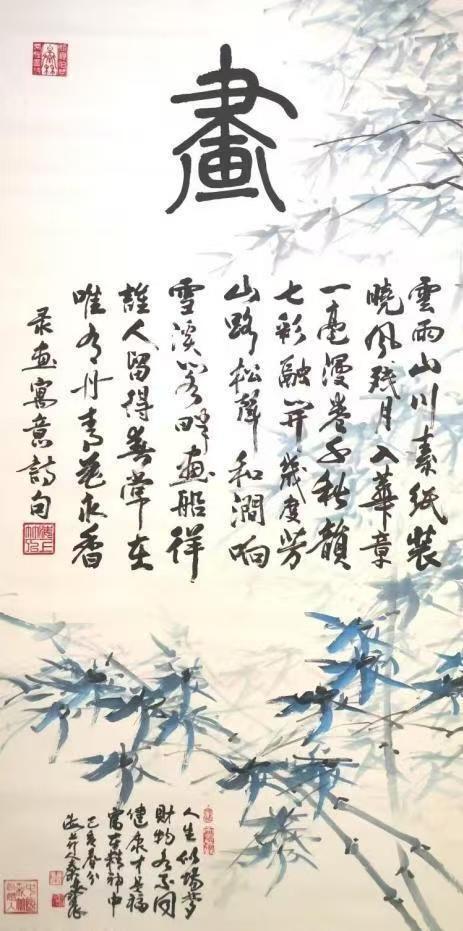 畫
雲雨山川素紙裝
曉風殘月入華章
一毫漫卷千秋韻
七彩融開幾度芳
山路松聲和澗响
雪溪岩畔畫船徉
誰人留得春常在
唯有丹青花永香
录畫寓意詩句
人生似場夢
財物有不同
健康才是福
富在精神中
乙亥春分